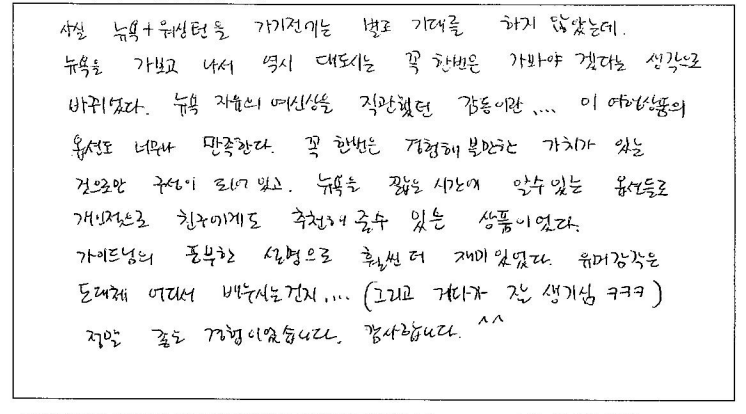 사실 뉴욕+워싱턴을 가기전에는 별로 기대를 하지 않았는데.
뉴욕을 가보고 나서 역시 대도시는 꼭 한번은 가봐야 겠다는 생각으로
바뀌었다. 뉴욕 자유의 여신상을 직관했던 감동이란.... 이 여행상품의
옵션도 너무나 만족한다. 꼭 한번은 경험해 볼만한 가치가 있는
것으로만 구성이 되어 있고. 뉴욕을 짧은 시간에 알수있는 옵션들로
개인적으로 친구에게도 추천해 줄수 있는 상품이었다.
가이드님의 풍부한 설명으로 훨씬 더 재미있었다. 유머감각은
도대체 어디서 배우시는건지.... (그리고 게다가 잘 생기심 ㅋㅋㅋ)
정말 좋은 경험이었습니다. 감사합니다. ^^